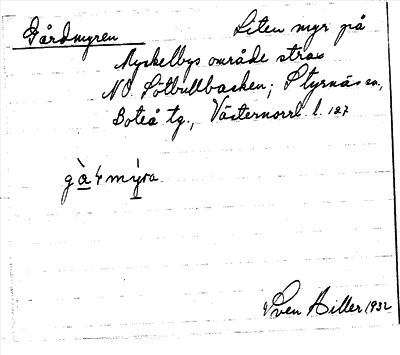 Gårdmyren Liten myr på
Myckelbys område strax
NO Sötbullbacken; Styrnäs sn,
Boteå tg., Västernorrl. l. 127
gà4mýra
Sven Hiller 1932